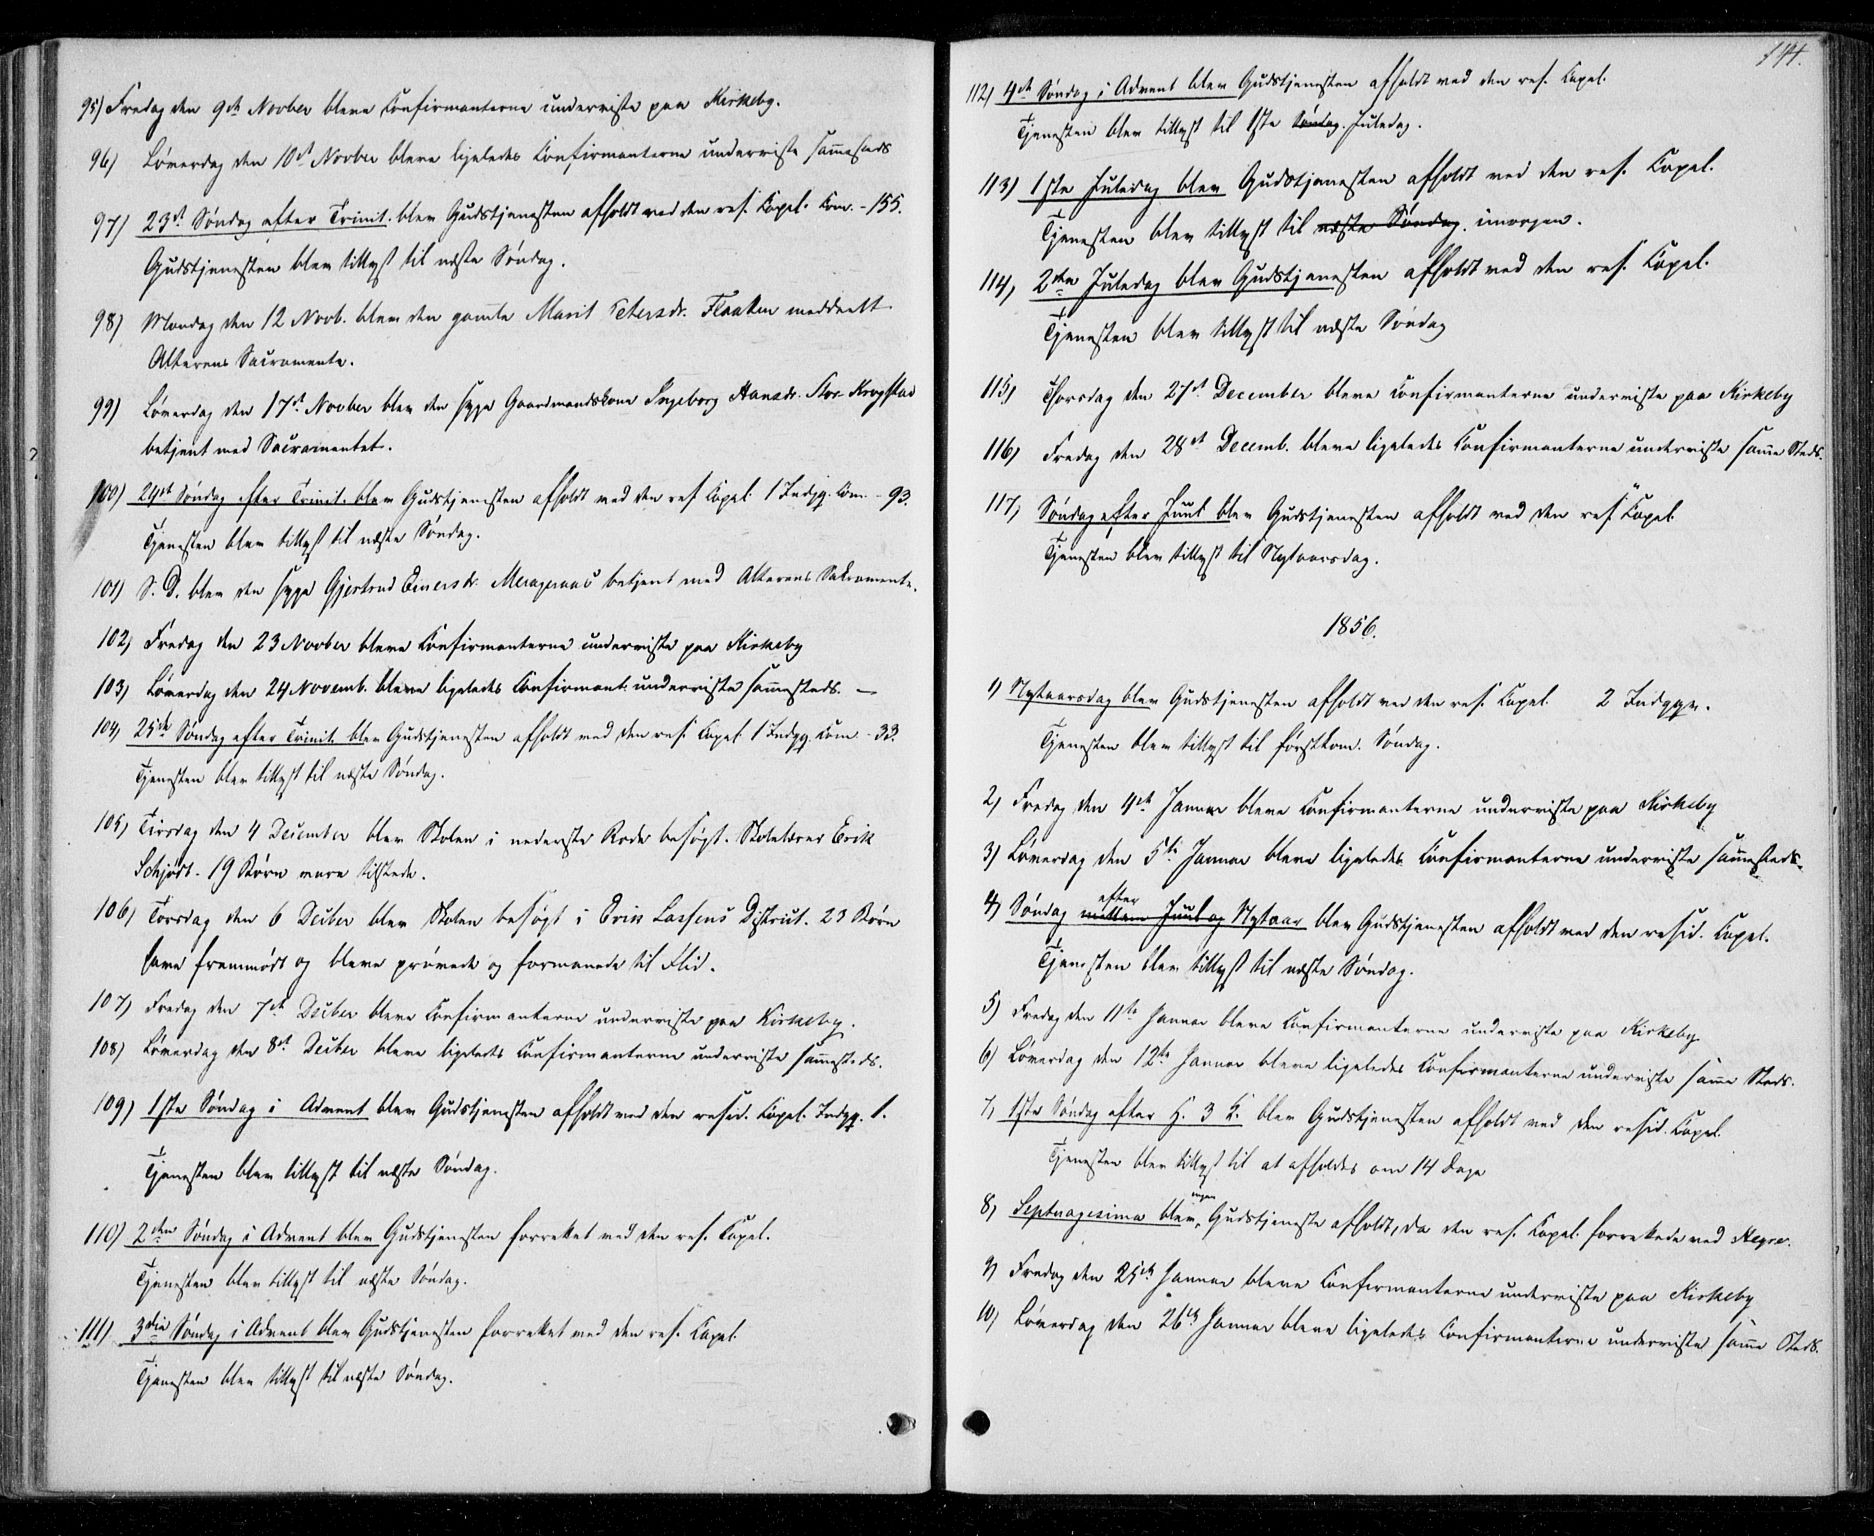 95) Fredag den 9de Novber bleve Confirmanterne underviste paa Kirkeby.
96) Løverdag den 10de Novber bleve ligeledes Confirmanterne underviste sammesteds
97) 23de Søndag efter Trinit. blev Gudstjenesten afholdt ved den res. Capel. Com. - 155.
Gudstjenesten blev tillyst til næste Søndag.
98) Mandag den 12 Novb. blev den gamle Marit Petersdr. Flaaten meddeelt
Alterens Sacramente.
99) Løverdag den 17de Novber blev den syge Gaardmandskone Ingeborg Hansdr. Stor Krogstad
betjent med Sacramentet.
100) 24de Søndag efter Trinit. blev Gudstjenesten afholdt ved den res Capel. 1 Indgg. Com. - 93.
Tjenesten blev tillyst til næste Søndag.
101) S. D. blev den syge Gjertrud Einersdr. Merageraas betjent med Alterens Sakramente.
102) Fredag den 23 Novber bleve Confirmanterne underviste paa Kirkeby
103) Løverdag den 24 Novemb. bleve ligeledes Confirmant. underviste sammesteds. —
104) 25de Søndag efter Trinit. blev Gudstjenesten afholdt ved den res. Capel. 1 Indgg. Com - 33.
Tjenesten blev tillyst til næste Søndag.
105) Tirsdag den 4 December blev Skolen i nederste Rode besøgt. Skolelærer Erik
Schjødt. 19 Børn vare tilstede.
106) Torsdag den 6 Decber blev Skolen besøgt i Lassens District. 23 Børn
vare fremmødt og bleve prøvede og formanede til Flid.
107) Fredag den 7de Decber bleve Confirmanterne underviste paa Kirkeby.
108) Løverdag den 8de Decber bleve ligeledes Confirmanterne underviste sammesteds.
109) 1ste Søndag i Advent blev Gudstjenesten afholdt ved den resid. Capel. Indgg. 1.
Tjenesten blev tillyst til næste Søndag.
110) 2den Søndag i Advent blev Gudstjenesten forrettet ved den res. Capel.
Tjenesten blev tillyst til næste Søndag.
111) 3die Søndag i Advent blev Gudstjenesten forrettet ved den res. Capel.
Tjenesten blev tillyst til næste Søndag.
144.
112) 4de Søndag i Advent blev Gudstjenesten afholdt ved den res. Capel.
Tjenesten blev tillyst til 1ste Søndag. Juledag.
113) 1ste Juledag blev Gudstjenesten afholdt ved den res. Capel.
Tjenesten blev tillyst til næste Søndag. imorgen.
114) 2den Juledag blev Gudstjenesten afholdt ved den res. Capel.
Tjenesten blev tillyst til næste Søndag
115) Thorsdag den 27de December bleve Confirmanterne underviste paa Kirkeby
116) Fredag den 28de Decemb. bleve ligeledes Confirmanterne underviste samme Steds.
117) Søndag efter Juul blev Gudstjenesten afholdt ved den res Capel.
Tjenesten blev tillyst til Nytaarsdag.
1856.
1) Nytaarsdag blev Gudstjenesten afholdt ved den res. Capel. 2 Indggn.
Tjenesten blev tillyst til førstkom. Søndag.
2) Fredag den 4de Januar bleve Confirmanterne underviste paa Kirkeby
3) Løverdag den 5te Januar bleve ligeledes Confirmanterne underviste sammesteds.
4) Søndag mellem Juul og efter Nytaar blev Gudstjenesten afholdt ved den resid. Capel.
Tjenesten blev tillyst til næste Søndag.
5) Fredag den 11te Januar bleve Confirmanterne underviste paa Kirkeby
6) Løverdag den 12te Januar bleve ligeledes Confirmanterne underviste samme Steds.
7) 1ste Søndag efter H. 3 K. blev Gudstjenesten afholdt ved den resid. Capel.
Tjenesten blev tillyst til at afholdes om 14 Dage
8) Septuagesima blev ingen Gudstjeneste afholdt, da den res. Capel. forrettede ved Hegre.
9) Fredag den 25de Januar bleve Confirmanterne underviste paa Kirkeby
10) Løverdag den 26de Januar bleve ligeledes Confirmanterne underviste samme Steds.